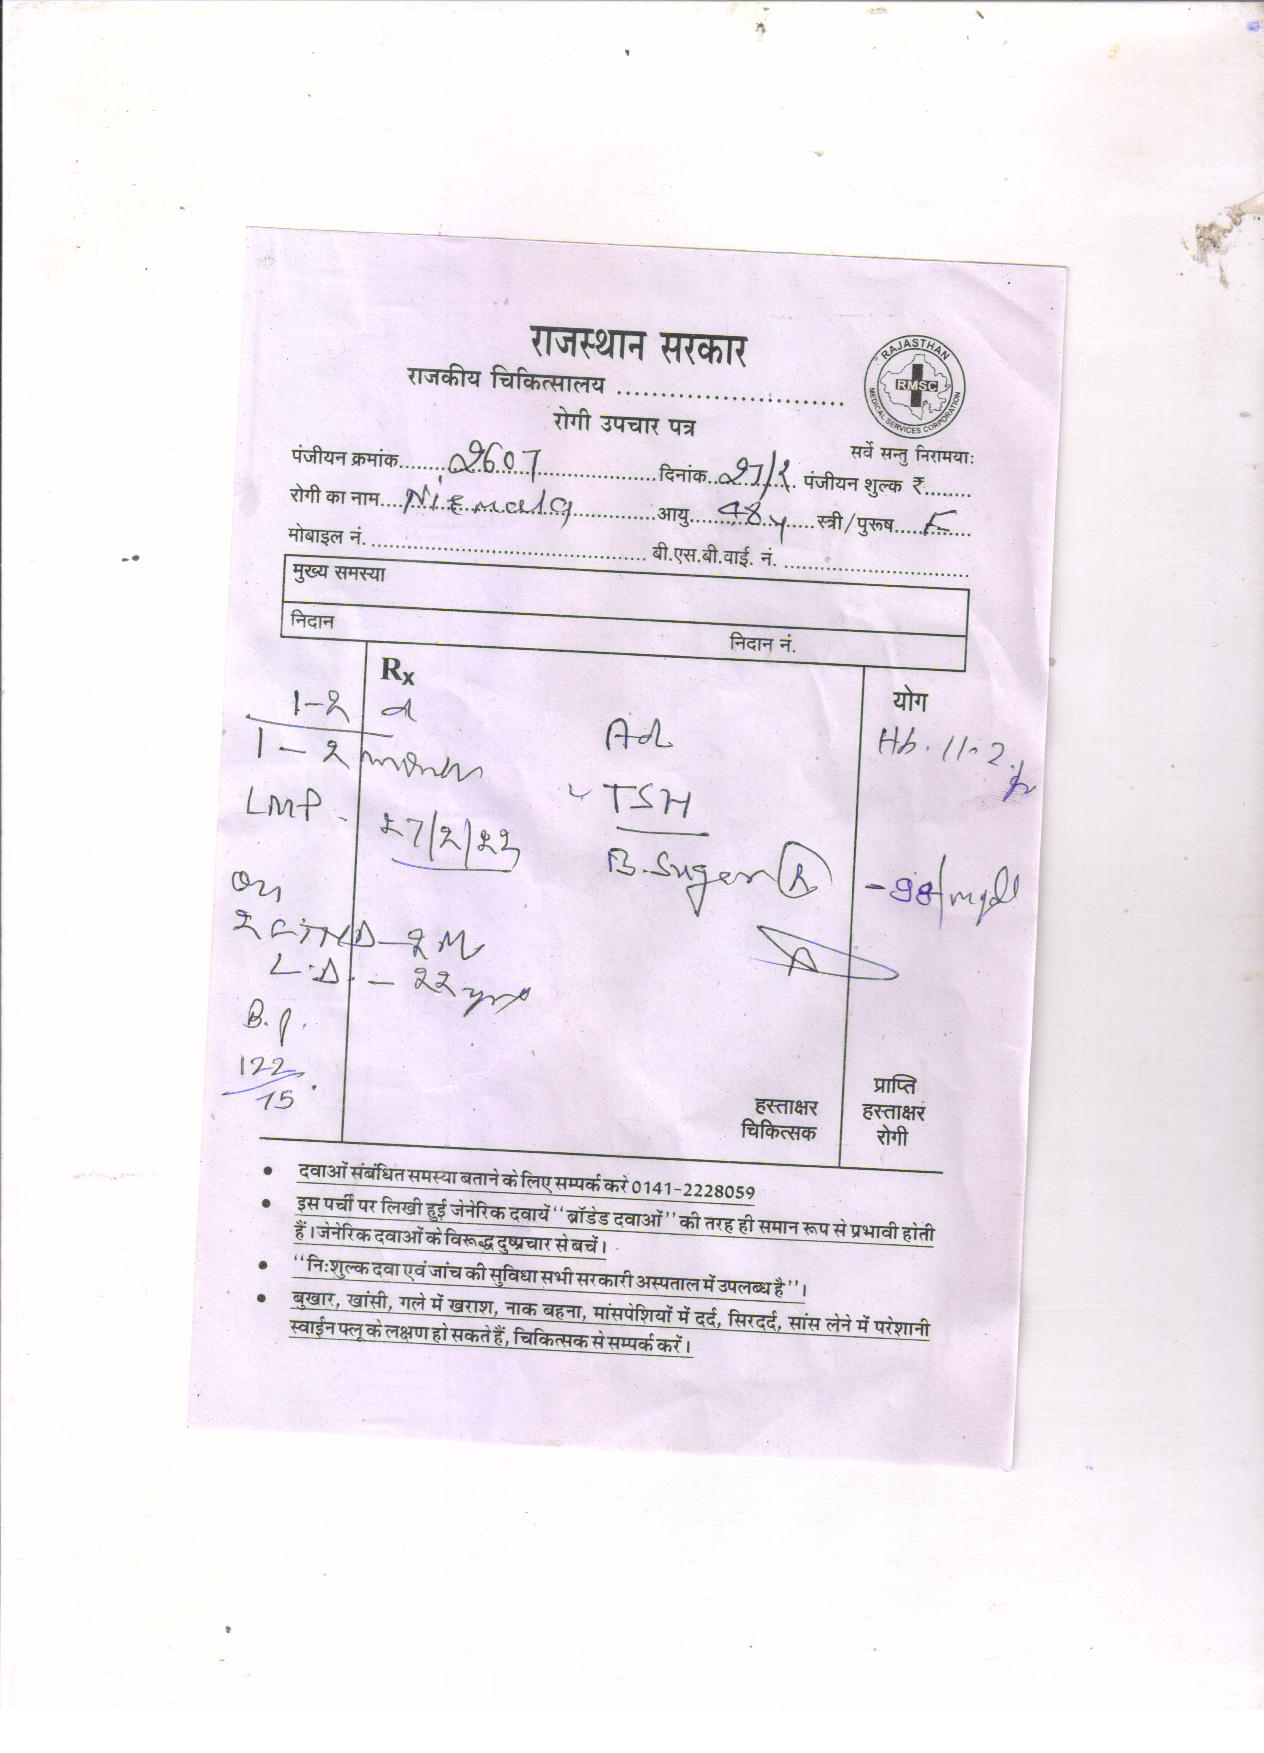 राजस्थान सरकार
राजकीय चिकित्सालय ..........................
रोगी उपचार पत्र
RAJASTHAN
RMSC
MEDICAL SERVICES CORPORATION
सर्वे सन्तु निरामयाः
पंजीयन क्रमांक........2607.................दिनांक..27/2.. पंजीयन शुल्क ₹........
रोगी का नाम....Nirmala..............आयु......48y......स्त्री/पुरूष....F....
मोबाइल नं. .......................................... बी.एस.बी.वाई. नं. ............................
मुख्य समस्या
निदान निदान नं.
Rx योग
1-2 d
1-2 Ad Hb. 11.2
LMP - 27/2/23 TSH
B. Sugar (R) - 98 mg/dl
2 FTND - 2 M
L.D. - 22 yrs
B.P.
122
75
हस्ताक्षर
चिकित्सक
प्राप्ति
हस्ताक्षर
रोगी
• दवाओं संबंधित समस्या बताने के लिए सम्पर्क करे 0141-2228059
• इस पर्ची पर लिखी हुई जेनेरिक दवायें "ब्रॉडेड दवाओं" की तरह ही समान रूप से प्रभावी होती
हैं। जेनेरिक दवाओं के विरूद्ध दुष्प्रचार से बचें।
• "निःशुल्क दवा एवं जांच की सुविधा सभी सरकारी अस्पताल में उपलब्ध है"।
• बुखार, खांसी, गले में खराश, नाक बहना, मांसपेशियों में दर्द, सिरदर्द, सांस लेने में परेशानी
स्वाईन फ्लू के लक्षण हो सकते हैं, चिकित्सक से सम्पर्क करें।